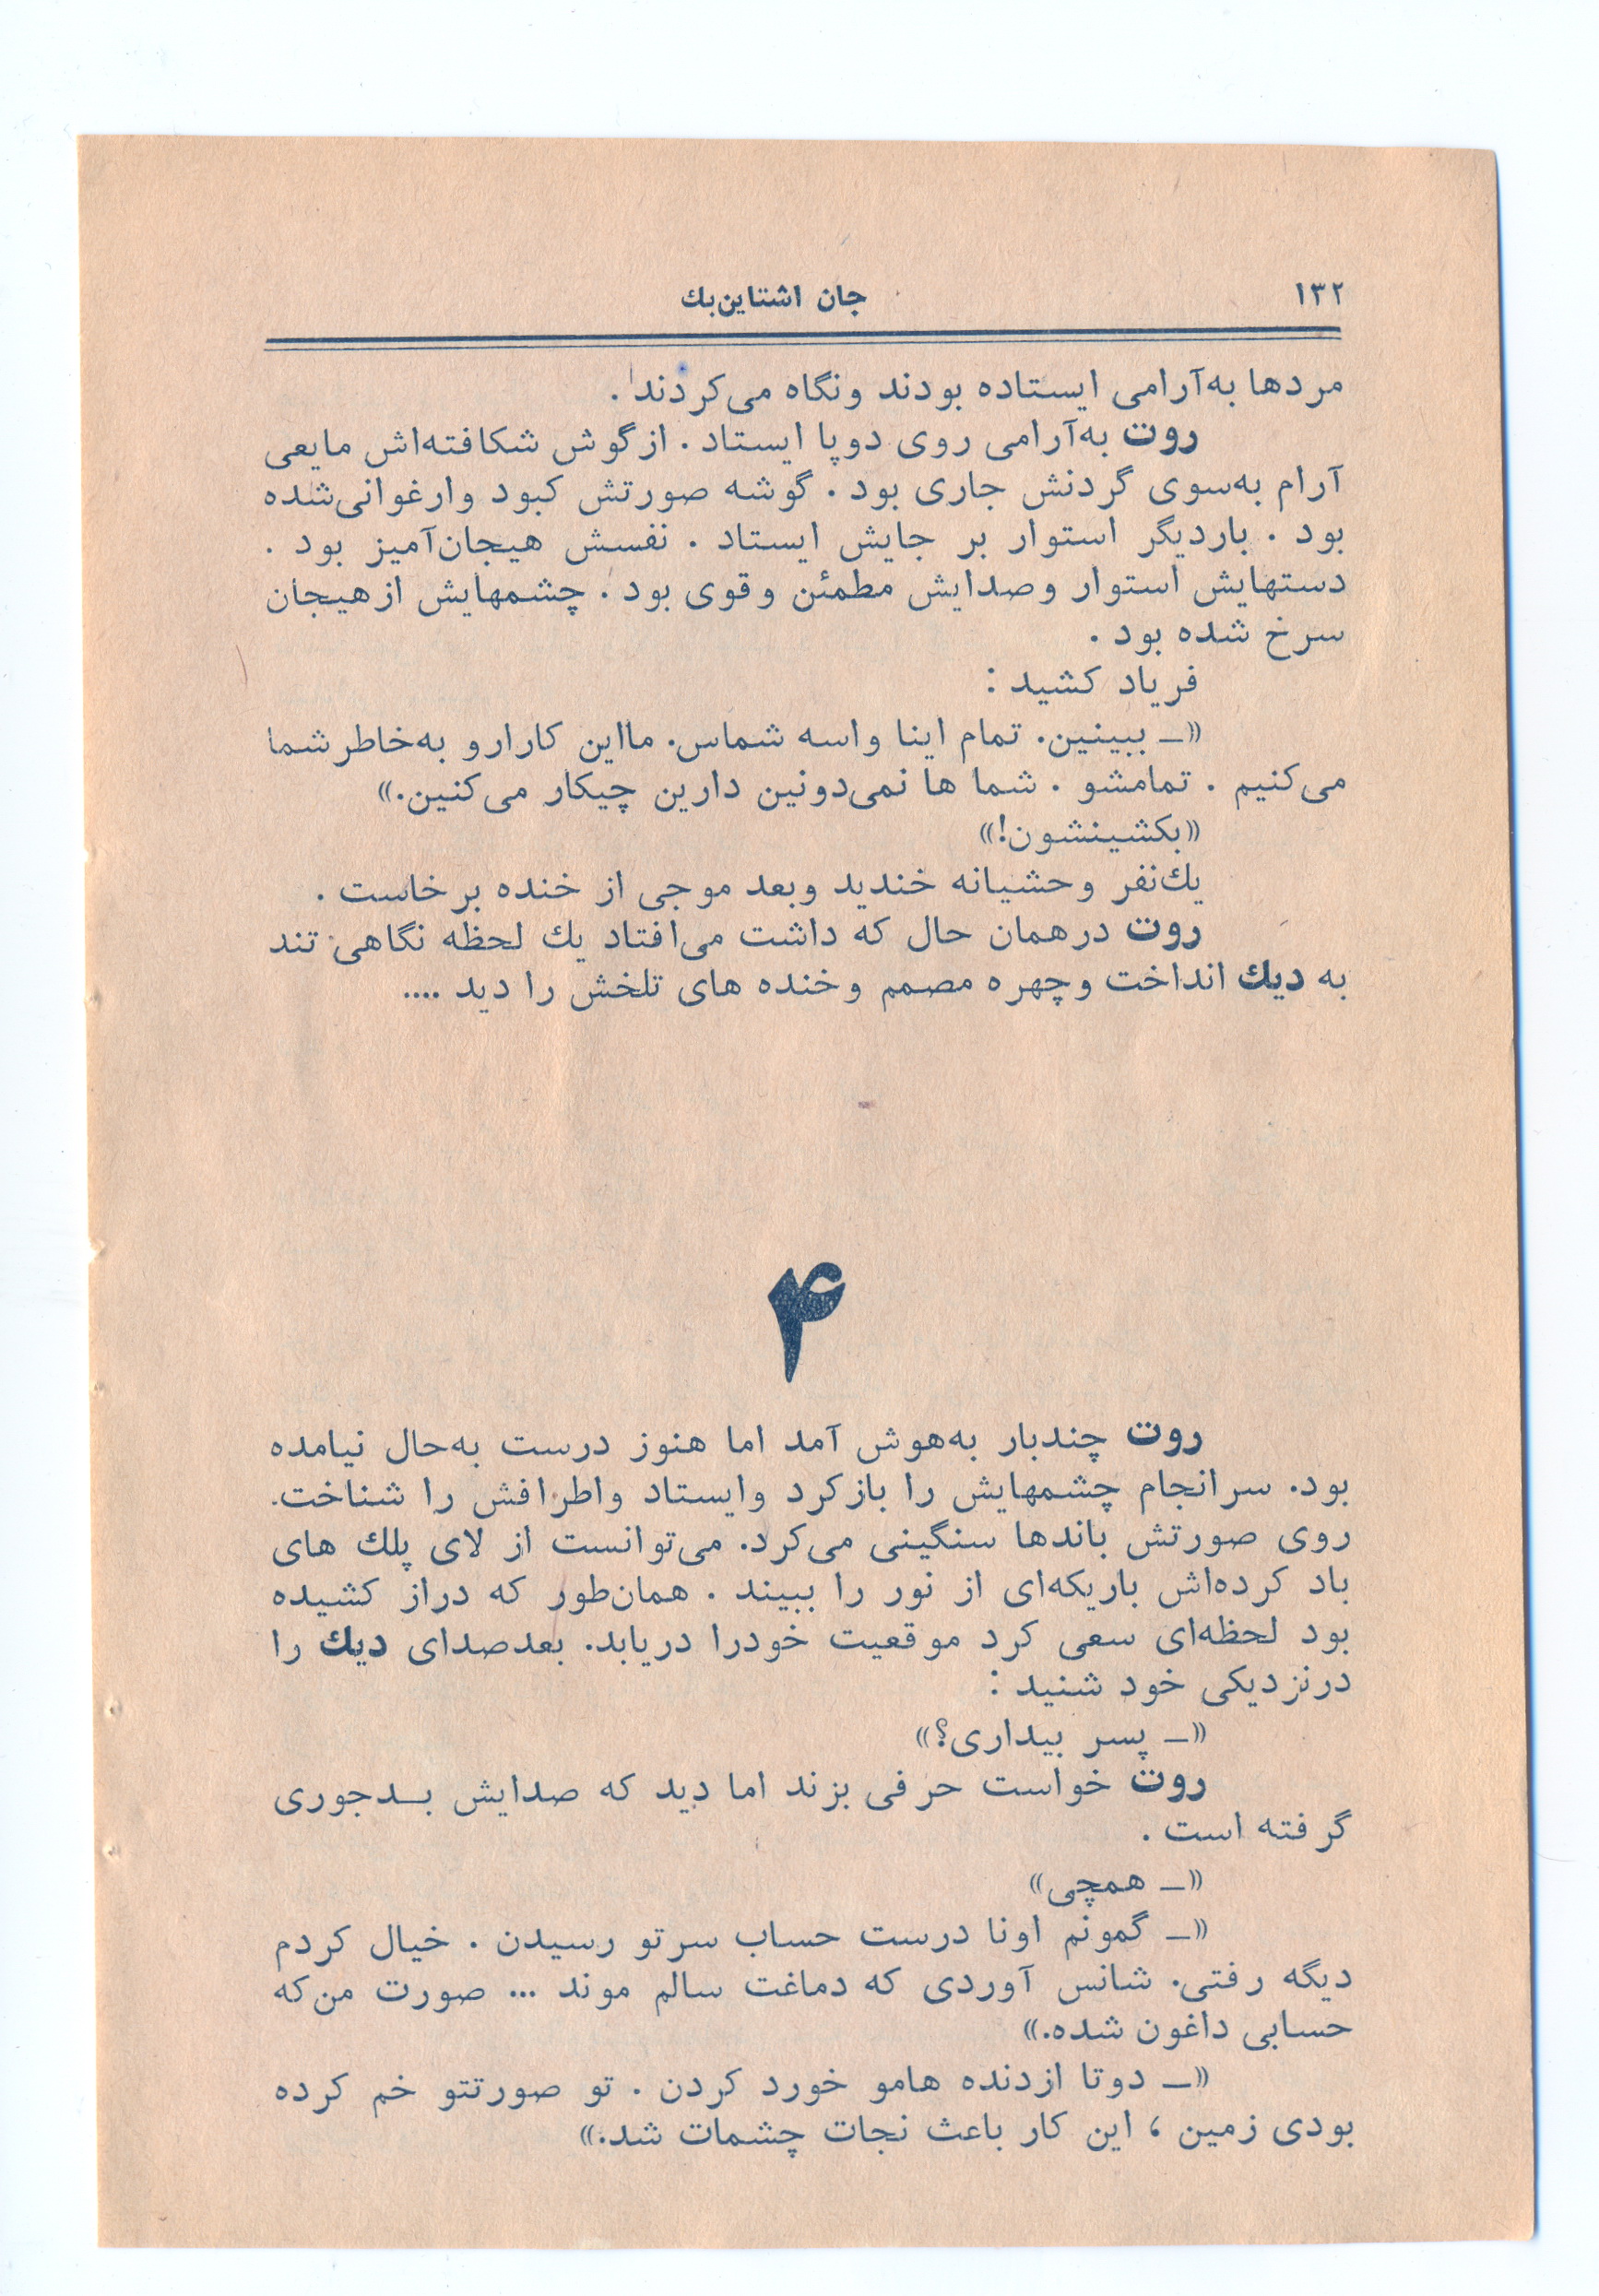 ۱۳۲
جان اشتاین‌بك
مردها به‌آرامی ایستاده بودند ونگاه می‌کردند .
روت به‌آرامی روی دوپا ایستاد . ازگوش شکافته‌اش مایعی
آرام به‌سوی گردنش جاری بود . گوشه صورتش کبود وارغوانی‌شده
بود . باردیگر استوار بر جایش ایستاد . نفسش هیجان‌آمیز بود .
دستهایش استوار وصدایش مطمئن وقوی بود . چشمهایش ازهیجان
سرخ شده بود .
فریاد کشید :
«ـ ببینین. تمام اینا واسه شماس. مااین کارارو به‌خاطرشما
می‌کنیم . تمامشو . شما ها نمی‌دونین دارین چیکار می‌کنین.»
«بکشینشون!»
یك‌نفر وحشیانه خندید وبعد موجی از خنده برخاست .
روت درهمان حال که داشت می‌افتاد یك لحظه نگاهی تند
به دیك انداخت وچهره مصمم وخنده های تلخش را دید ....
۴
روت چندبار به‌هوش آمد اما هنوز درست به‌حال نیامده
بود. سرانجام چشمهایش را بازکرد وایستاد واطرافش را شناخت.
روی صورتش باندها سنگینی می‌کرد. می‌توانست از لای پلك های
باد کرده‌اش باریکه‌ای از نور را ببیند . همان‌طور که دراز کشیده
بود لحظه‌ای سعی کرد موقعیت خودرا دریابد. بعدصدای دیك را
درنزدیکی خود شنید :
«ـ پسر بیداری؟»
روت خواست حرفی بزند اما دید که صدایش بـدجوری
گرفته است .
«ـ همچی»
«ـ گمونم اونا درست حساب سرتو رسیدن . خیال کردم
دیگه رفتی. شانس آوردی که دماغت سالم موند ... صورت من‌که
حسابی داغون شده.»
«ـ دوتا ازدنده هامو خورد کردن . تو صورتتو خم کرده
بودی زمین ، این کار باعث نجات چشمات شد.»